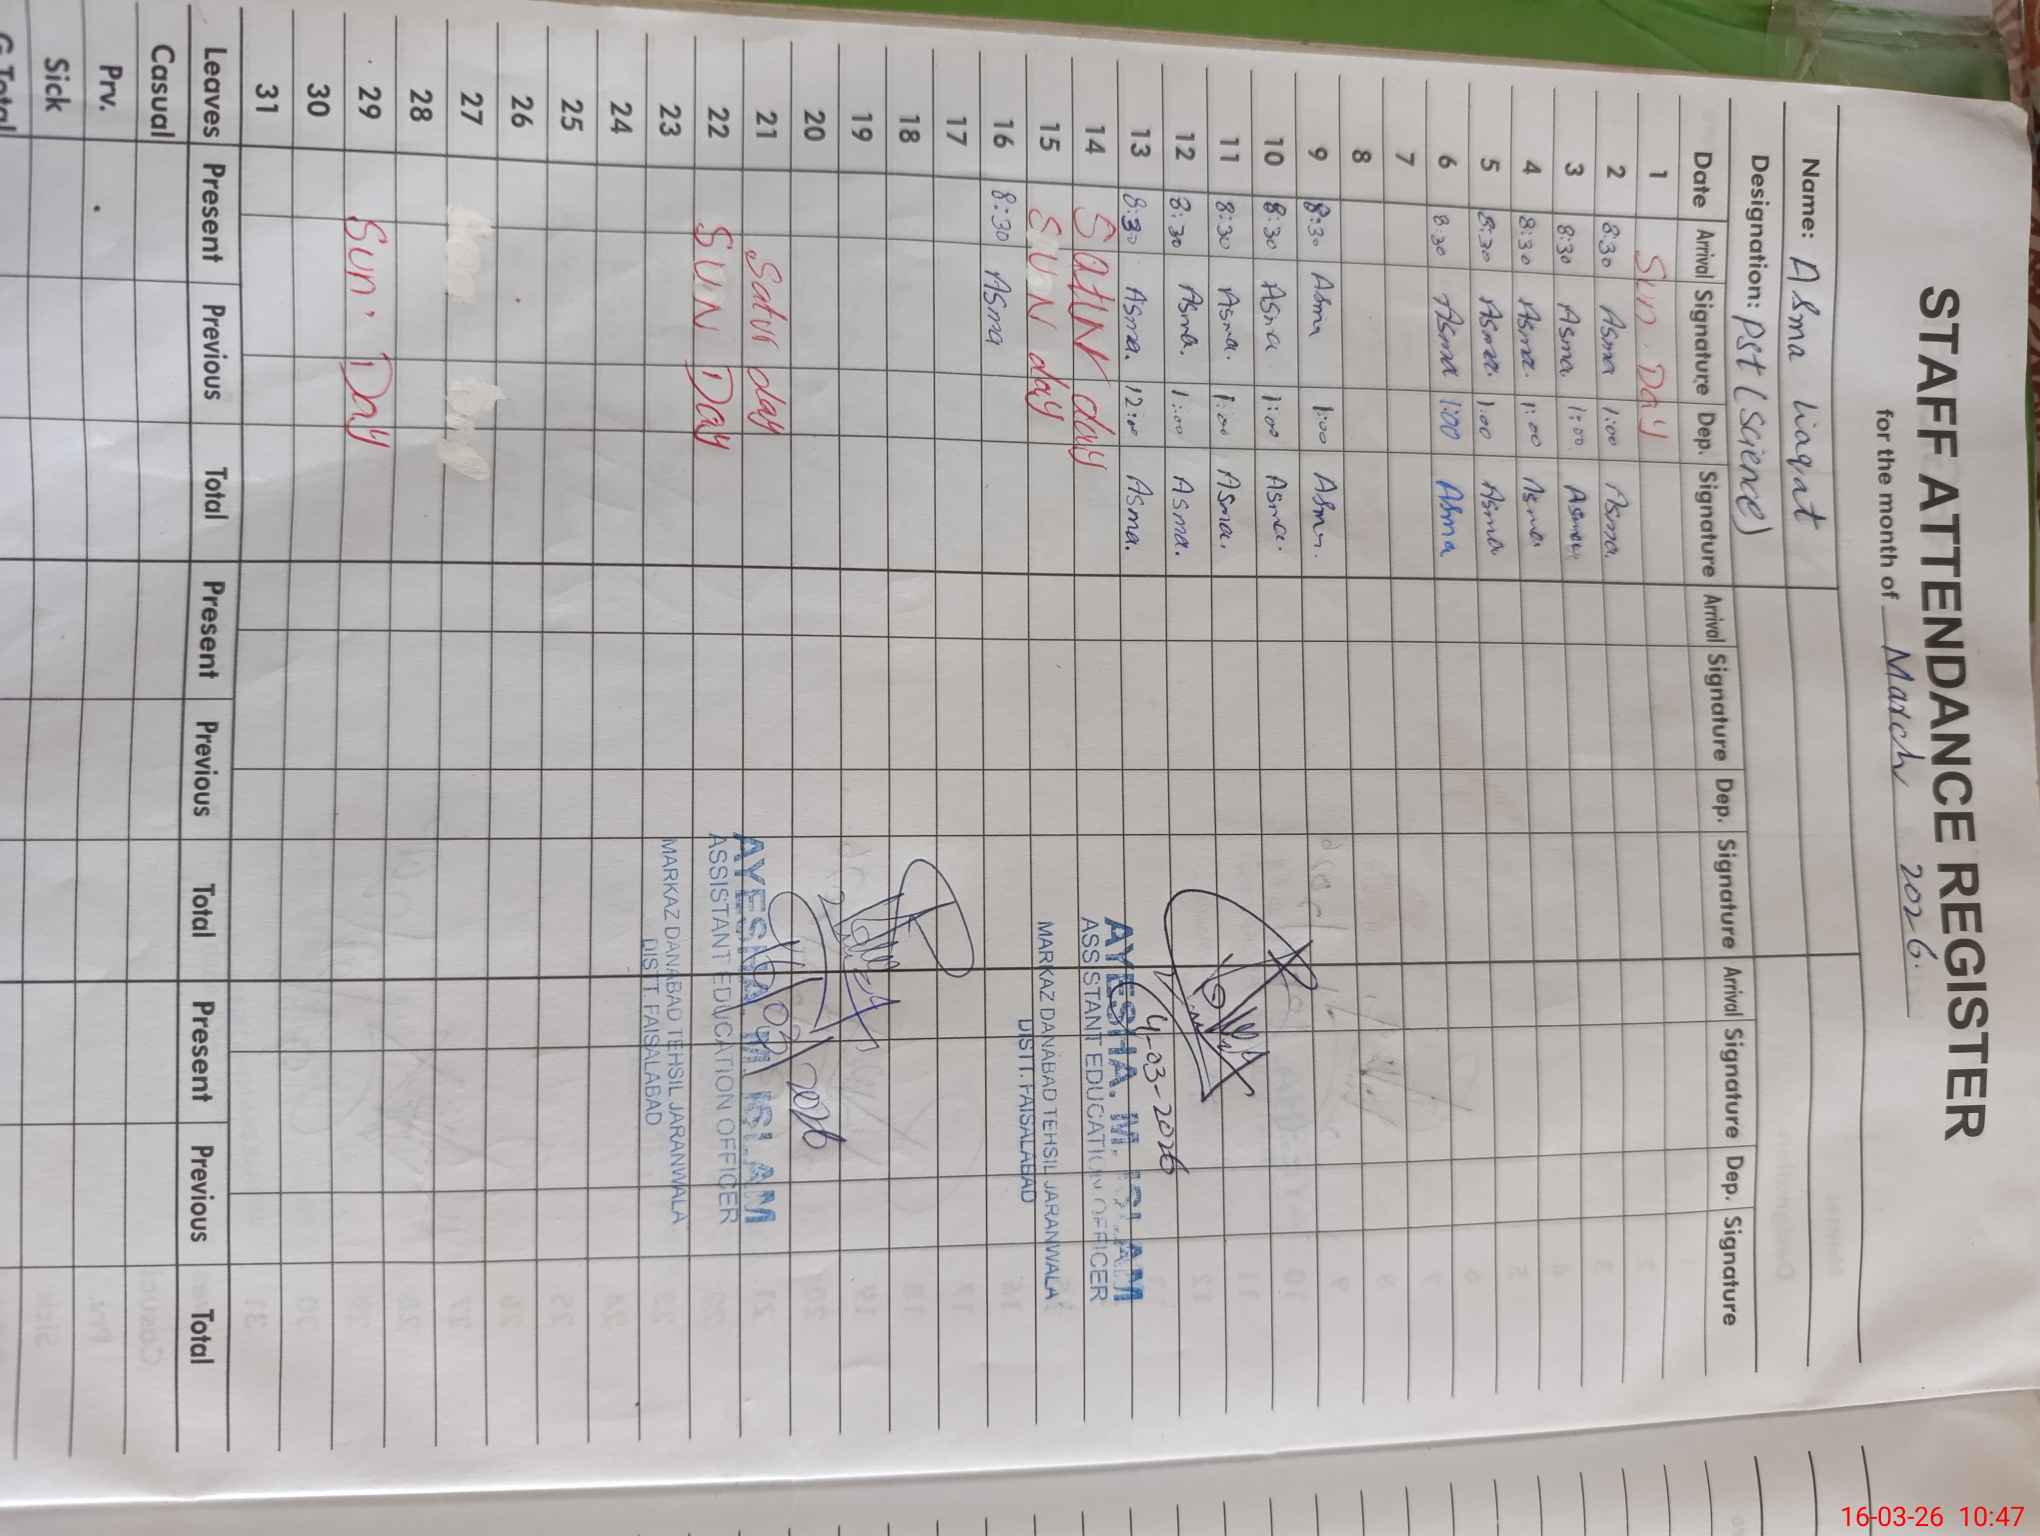 STAFF ATTENDANCE REGISTER
for the month of March 2026.
Name: Asma liaqat
Designation: Pst (Science)
Date Arrival Signature Dep. Signature Arrival Signature Dep. Signature Arrival Signature Dep. Signature
1 Sun. Day
2 8:30 Asma 1:00 Asma.
3 8:30 Asma. 1:00 Asma
4 8:30 Asma. 1:00 Asma
5 8:30 Asma. 1:00 Asma
6 8:30 Asma 1:00 Asma
7
8
9 8:30 Asma 1:00
10 8:30 Asma 1:00 Asma.
11 8:30 Asma. 1:00 Asma.
12 8:30 Asma. 1:00 Asma.
4-03-2026
13 8:30 Asma. 12:00 Asma.
AYESHA. M. ISLAM
14 day
ASSISTANT EDUCATION OFFICER
15 SUN day
MARKAZ DANABAD TEHSIL JARANWALA
DISTT. FAISALABAD
16 8:30 Asma
17
18
19
20
2026
21 Satur day
AYESHA. M. ISLAM
22 SUN DAY
ASSISTANT EDUCATION OFFICER
23
MARKAZ DANABAD TEHSIL JARANWALA
DISTT. FAISALABAD
24
25
26
27
28
29 Sun. Day
30
31
Leaves Present Previous Total Present Previous Total Present Previous Total
Casual
Prv.
Sick
G.Total
16-03-26 10:47